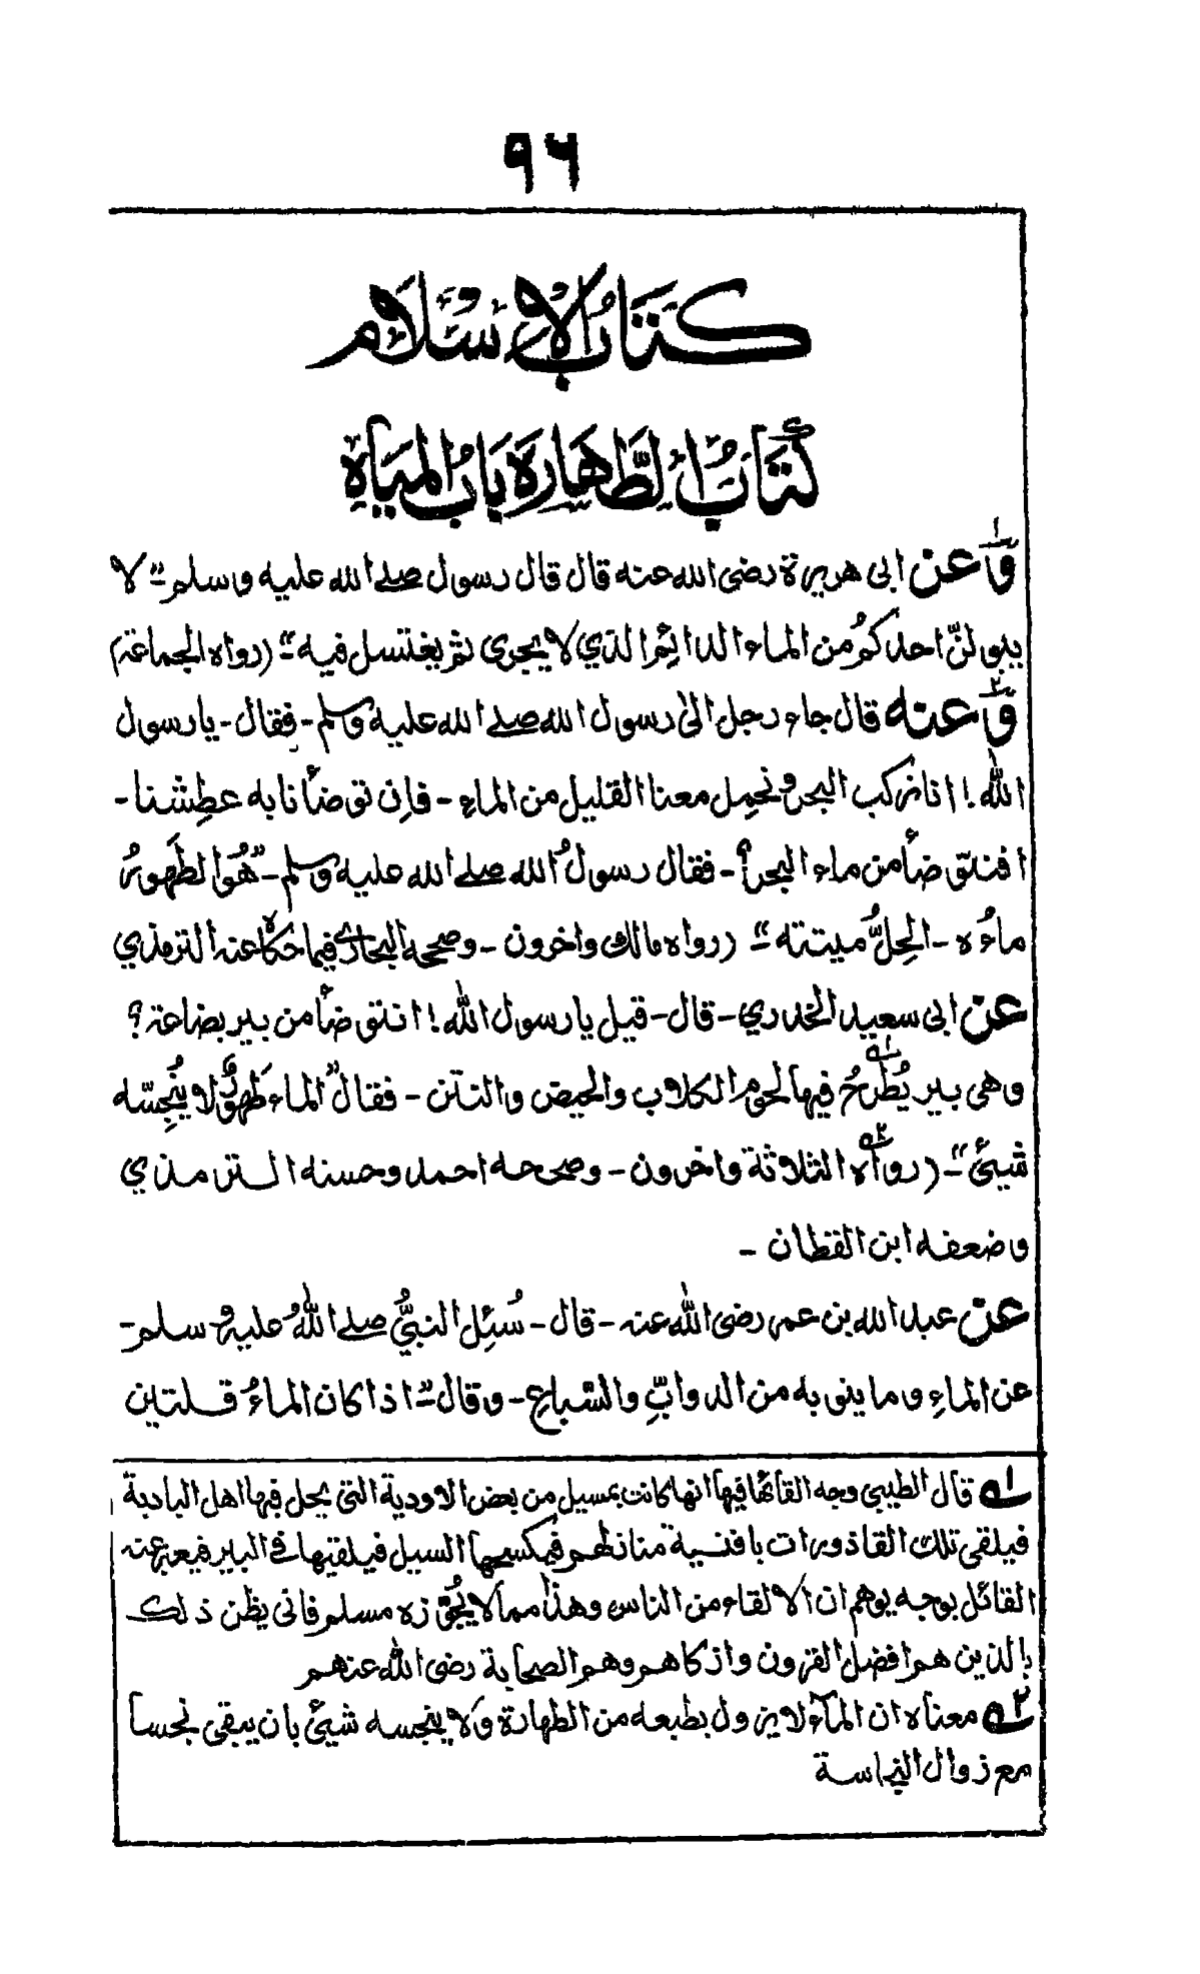 ٩٦
كتاب الإسلام
كتابُ الطَّهارة بابُ المياه
وعن ابى هريرة رضى الله عنه قال قال رسول الله صلے الله عليه وسلم "لا
يبولنّ احدكمُ من الماء الدائم الذي لا يجرى ثم يغتسل فيه" (رواه الجماعة)
وعنه قال جاء رجل الىٰ رسول الله صلے الله عليه وسلم - فقال - يا رسول
الله! انا نركب البحر ونحمِل معنا القليل من الماءِ - فاِن توضأنا به عطِشنا -
افنتوضأ من ماء البحر؟ - فقال رسولُ الله صلے الله عليه وسلم - "هُوا لطَهورُ
ماءُه - الحِلُّ ميتته" (رواه مالك واخرون - وصححه البخاري فيما حكاه عنه الترمذي
عن ابى سعيد الخدري - قال - قيل يا رسول الله! انتوضأ من بير بضاعة؟
وهى بير يُطْرحُ فيها لحوم الكلاب والحيض والنتن - فقال "الماء طَهورٌ لا يُنَجِسّه
شيئ" - (رواه الثلاثة واخرون - وصححه احمد وحسنه الترمذي
وضعفه ابن القطان -
عن عبد الله بن عمر رضى الله عنه - قال - سُئِل النبيُّ صلے اللهُ عليه وسلم -
عن الماءِ وما ينوبه من الدوابِّ والسّباعِ - وقال "اذا كان الماءُ قلتين
١ قال الطيبي وجه القائها فيها انها كانت بمسيل من بعض الاودية التى يحل فيها اهل البادية
فيلقى تلك القاذورات بافنية منازلهم فيكسحها السيل فيلقيها فى البير فيعبر عنه
القائل بوجه يوهم ان الالقاء من الناس وهذا مما لا يُجوّزه مسلم فانى يظن ذلك
بالذين هم افضل القرون وازكاهم وهم الصحابة رضى الله عنهم
٢ معناه ان الماء لا يزول بطبعه من الطهارة ولا ينجسه شيئ بان يبقى نجسا
مع زوال النجاسة